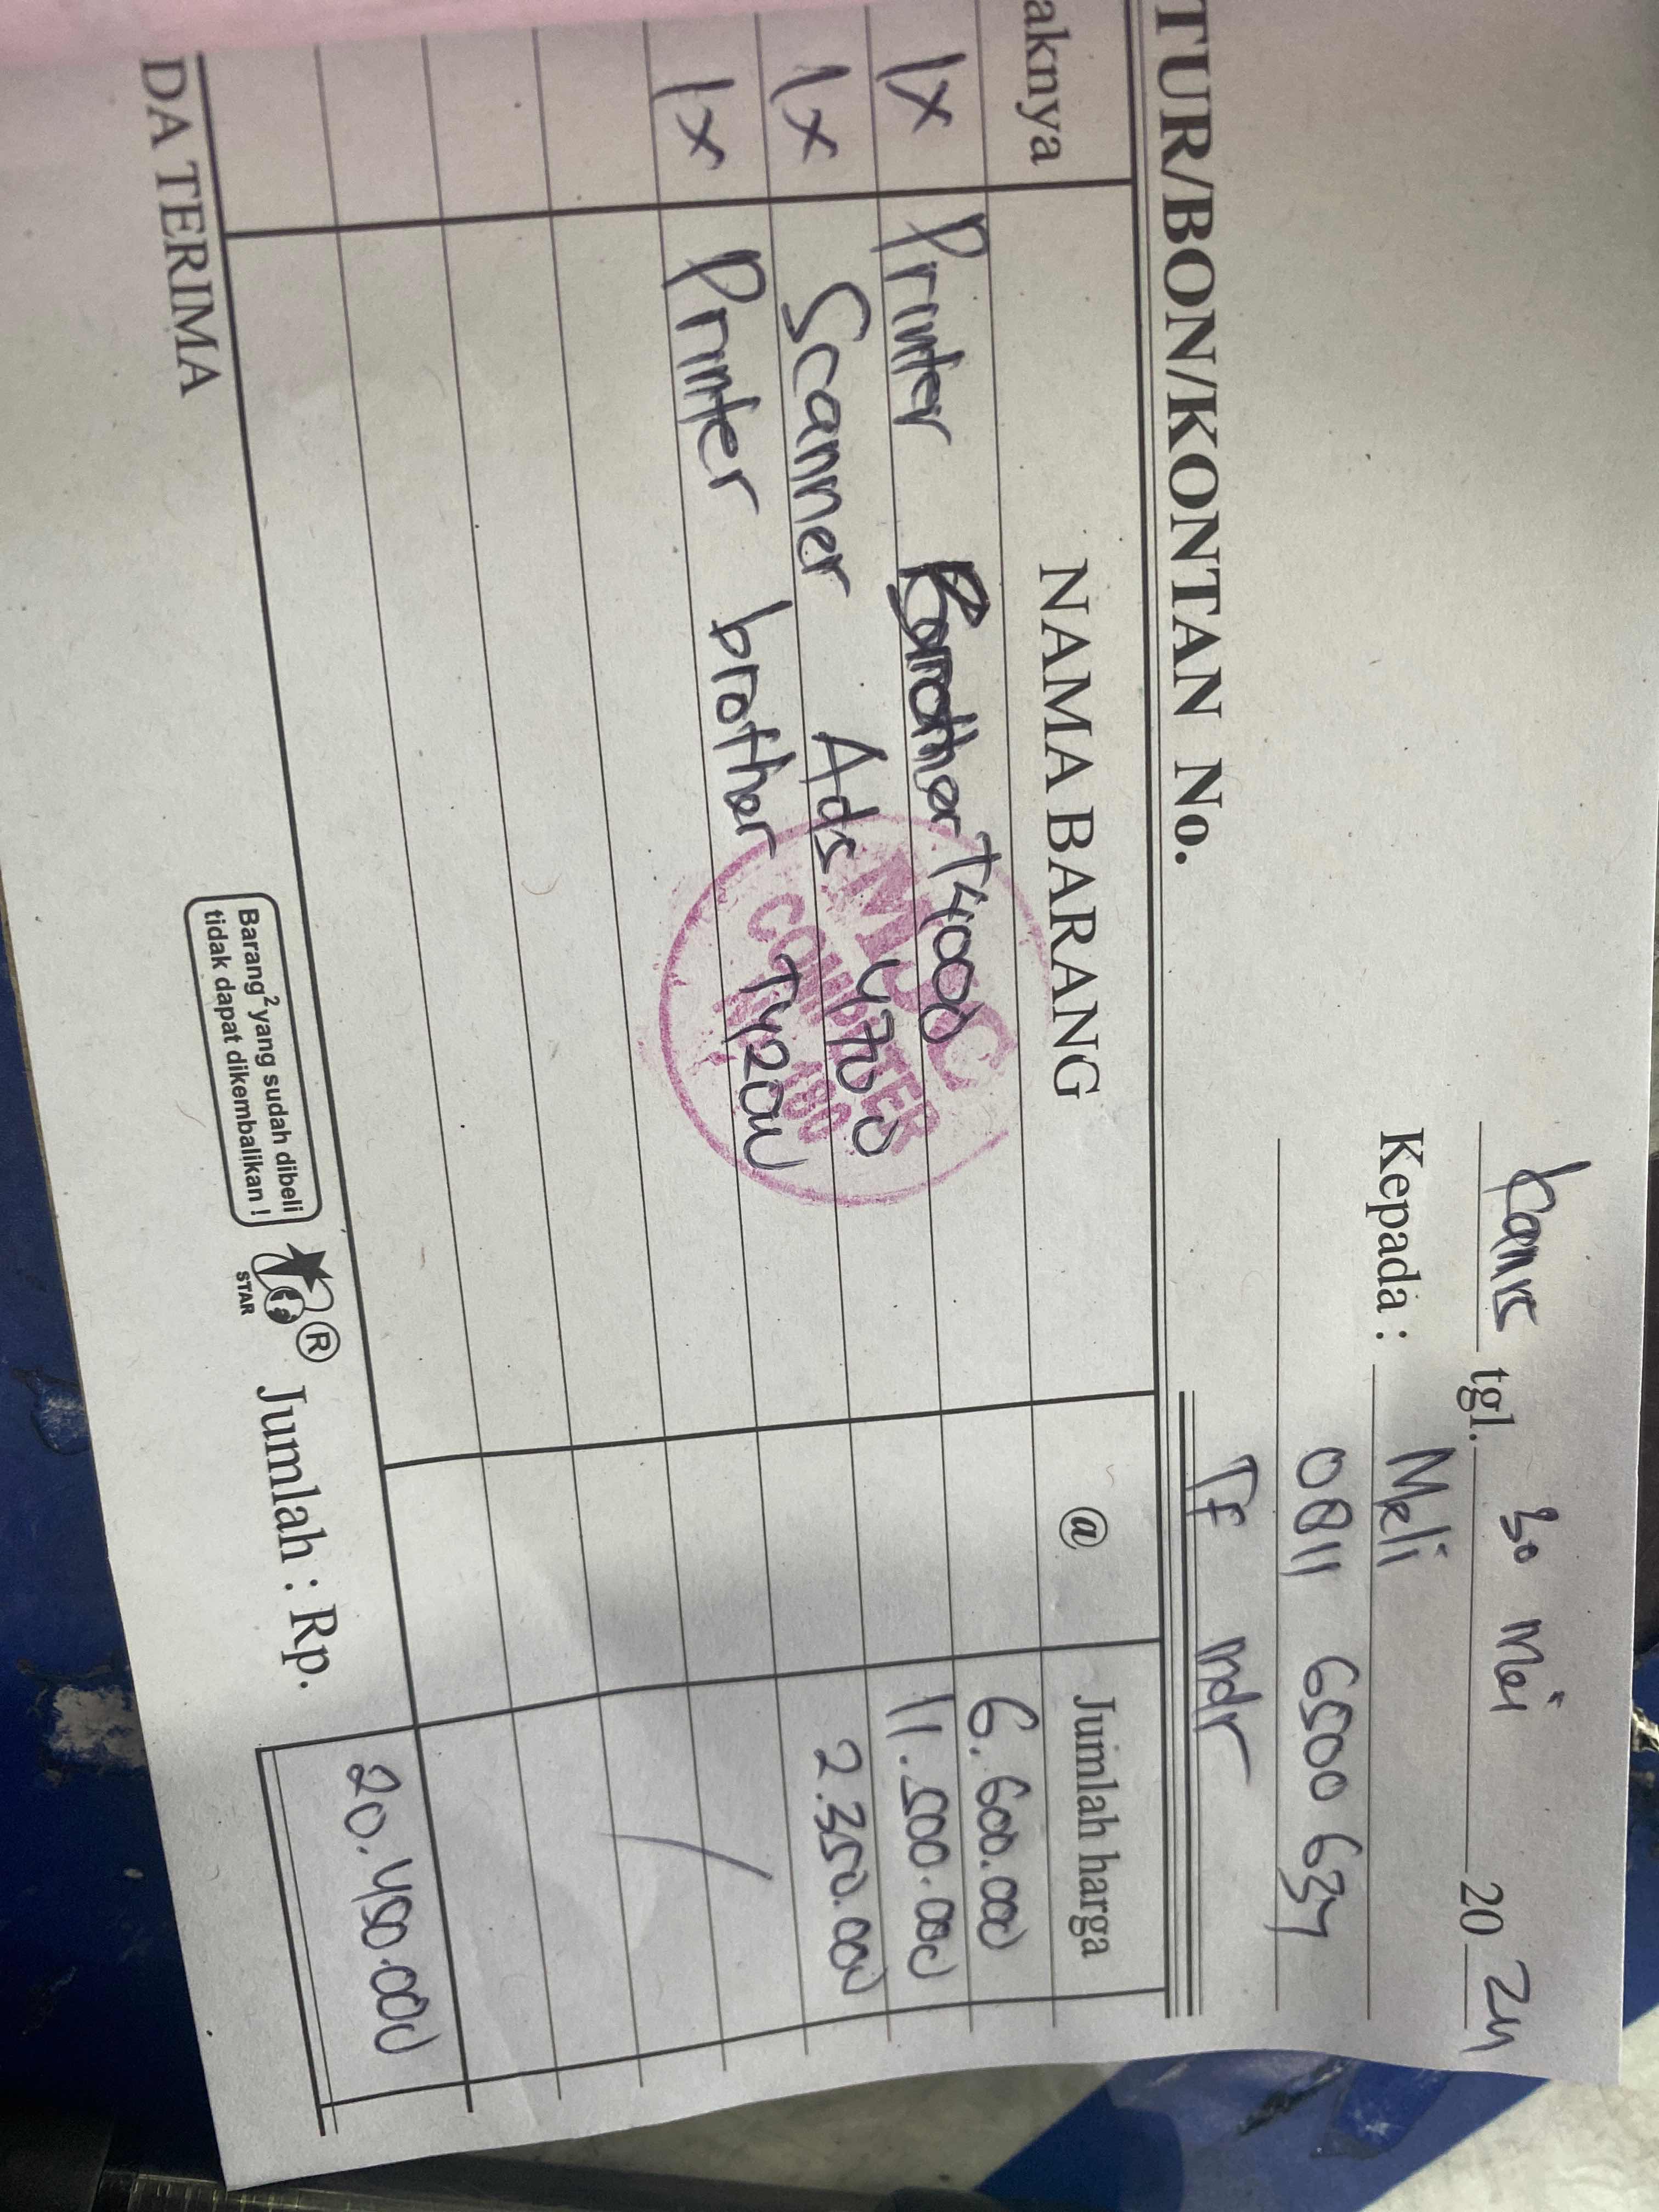 Kamis tgl. 30 Mei 20 24
Kepada : Meli
0811 6500 634
TUR/BON/KONTAN No. TF mdr
aknya NAMA BARANG @ Jumlah harga
1x Printer Brother T4000 6.600.000
1x Scanner Ads 4700 11.500.000
1x Printer brother T420W 2.350.000
MJC
COMPUTER
20.450.000
DA TERIMA
Barang² yang sudah dibeli
tidak dapat dikembalikan !
STAR
®
Jumlah : Rp.